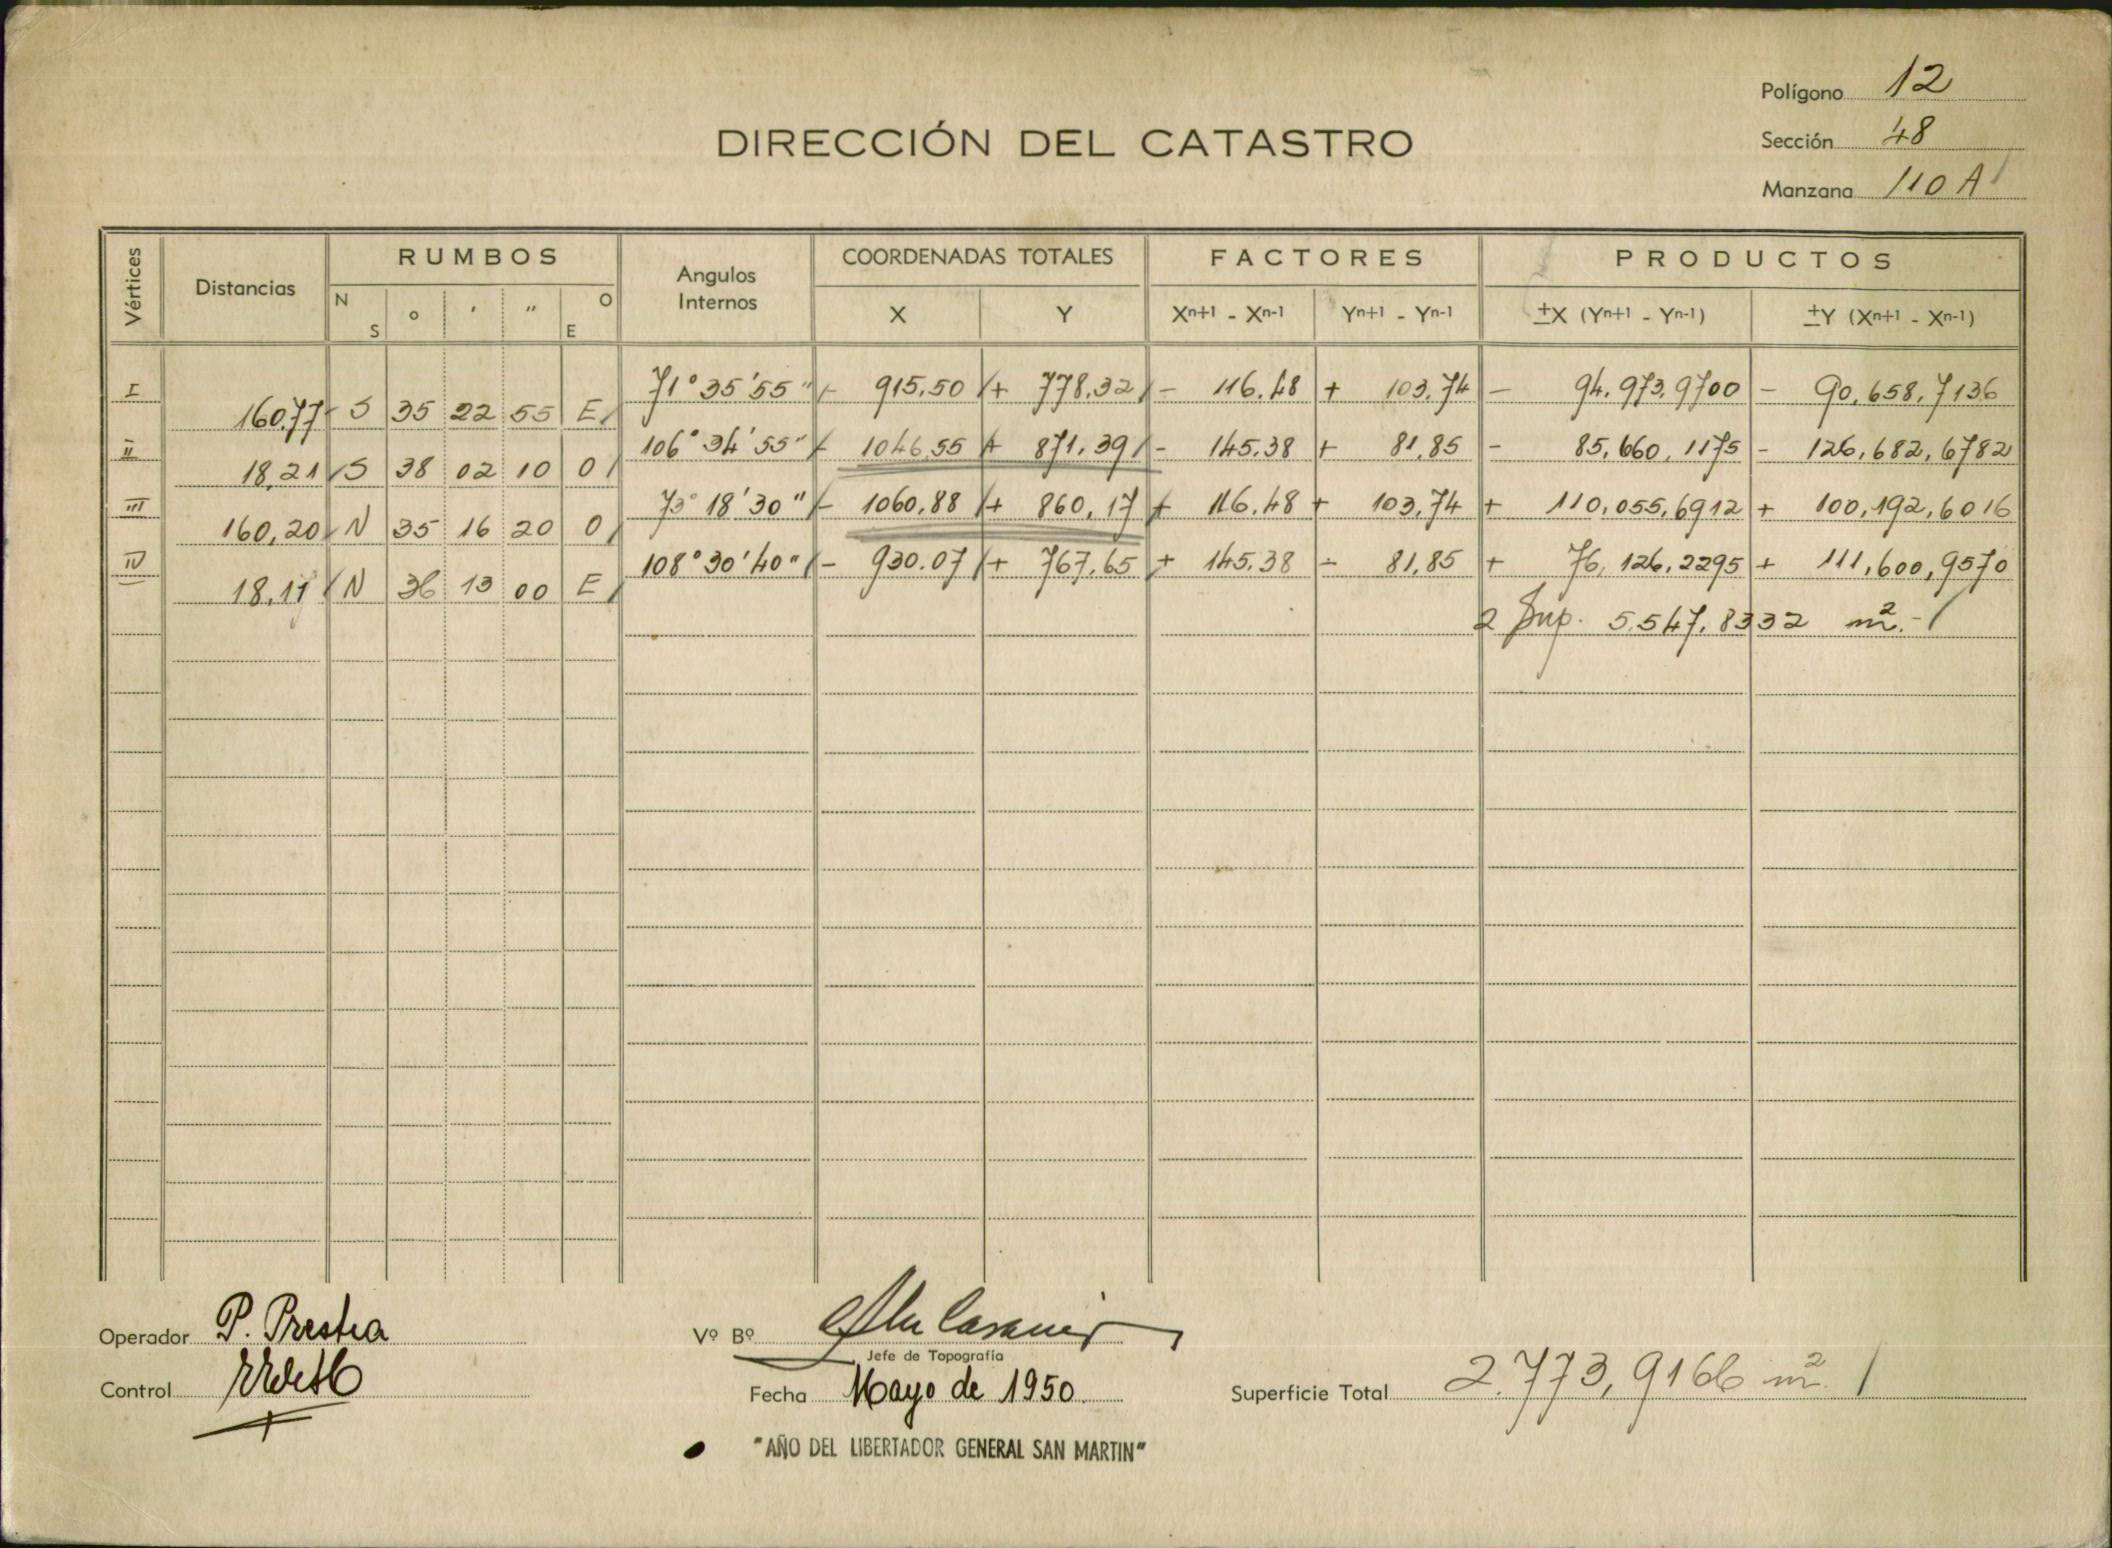 Polígono 12
DIRECCIÓN DEL CATASTRO
Sección 48
Manzana 110 A
Vértices Distancias RUMBOS N S ° ' " O E Angulos Internos COORDENADAS TOTALES X Y FACTORES Xn+1 - Xn-1 Yn+1 - Yn-1 PRODUCTOS ±X (Yn+1 - Yn-1) ±Y (Xn+1 - Xn-1)
I 71° 35' 55" - 915,50 + 778,32 - 116,48 + 103,74 - 94,973,9700 - 90,658,7136
160,77 S 35 22 55 E
II 106° 34' 55" - 1046,55 + 871,39 - 145,38 + 81,85 - 85,660,1175 - 126,682,6782
18,21 S 38 02 10 O
III 73° 18' 30" - 1060,88 + 860,17 + 116,48 + 103,74 + 110,055,6912 + 100,192,6016
160,20 N 35 16 20 O
IV 108° 30' 40" - 930.07 + 767,65 + 145,38 - 81,85 + 76,126,2295 + 111,600,9570
18,11 N 36 13 00 E
2 Sup. 5.547,8332 m².-
Operador P. Prestia
Vº Bº
Jefe de Topografía
Control
Fecha Mayo de 1950
Superficie Total 2.773,9166 m²
"AÑO DEL LIBERTADOR GENERAL SAN MARTIN"